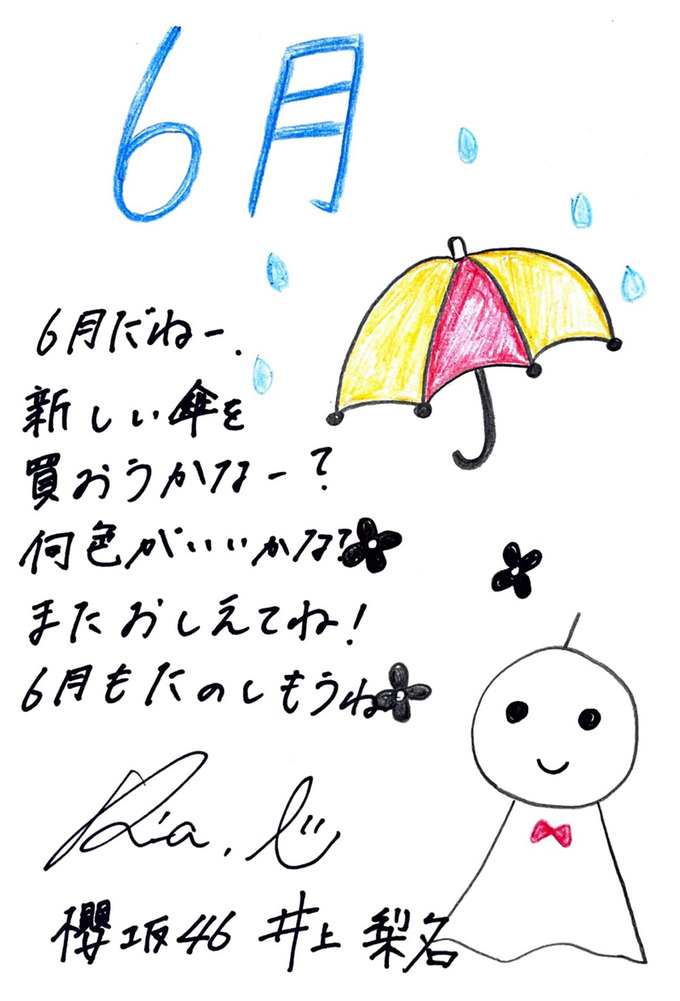 6月
6月だねー.
新しい傘を
買おうかなー?
何色がいいかな?
またおしえてね!
6月もたのしもうね
Ria.
櫻坂46 井上 梨名